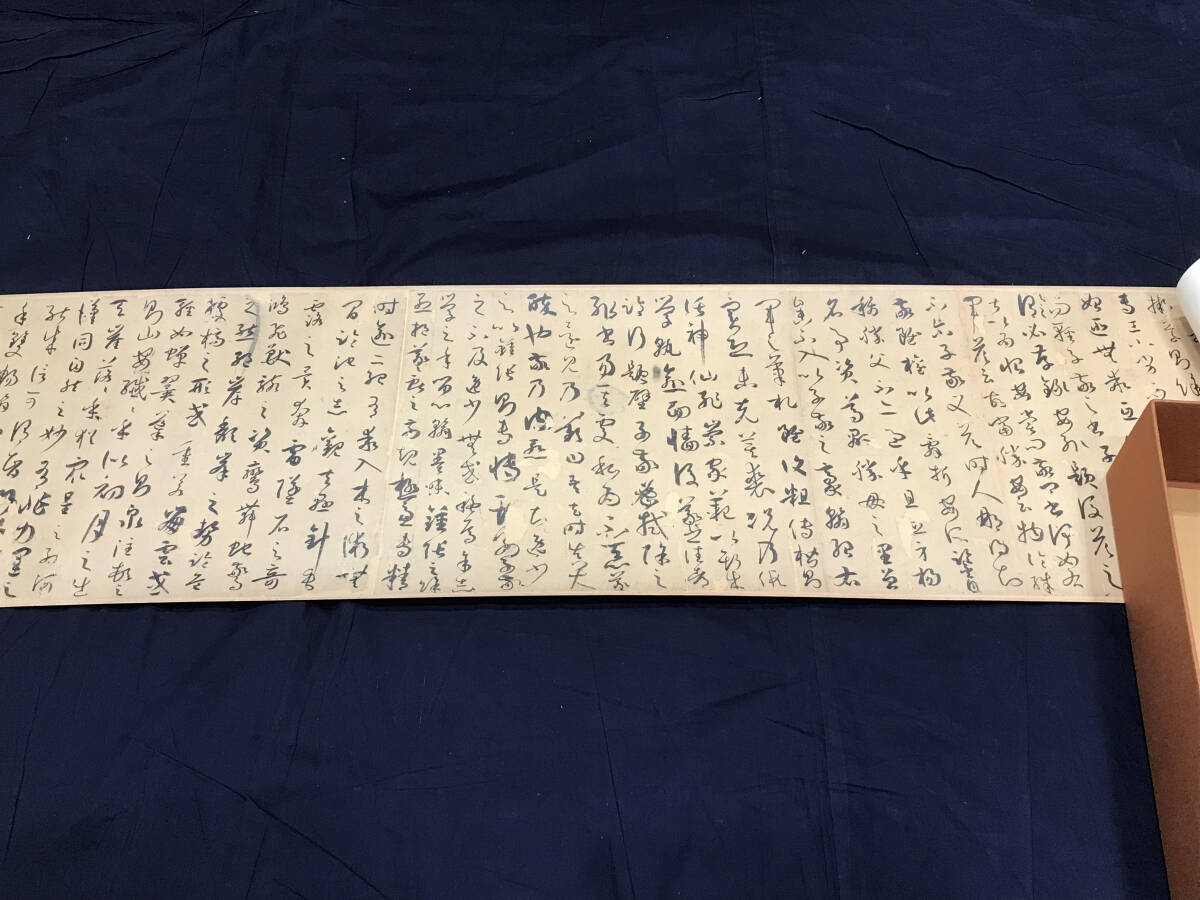 擬草則餘
專工小劣
始匪無乖互
而輕子敬之書子
謂必存錄安輒題後答之
甚以為恨安嘗問敬卿書何如右
軍答云故當勝安云物論殊
不爾子敬又答時人那得知
敬雖權以此辭折安所鑒自
稱勝父不亦過乎且立身揚
名事資尊顯勝母之里曾
參不入以子敬之豪翰紹右
軍之筆札雖復粗傳楷則
實恐未克箕裘況乃假
託神仙恥崇家範以斯成
學孰愈面牆後羲之往都
臨行題壁子敬密拭除之
輒書易其處私為不惡羲
之還見乃歎曰吾去時真大
醉也敬乃內慚是知逸少
之比鍾張則專博斯別子敬
之不及逸少無或疑焉余志
學之年留心翰墨味鍾張之餘
烈挹羲獻之前規極慮專精
時逾二紀有乖入木之術無
間臨池之志觀夫懸針垂
露之異奔雷墜石之奇
鴻飛獸駭之資鸞舞蛇驚
之態絕岸頹峰之勢臨危
據槁之形或重若崩雲或
輕如蟬翼導之則泉注頓之
則山安纖纖乎似初月之出
天崖落落乎猶眾星之列河
漢同自然之妙有非力運之
能成信可謂智巧兼優心
手雙暢翰不虛動